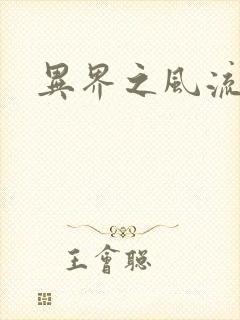 異界之風流
王會聰